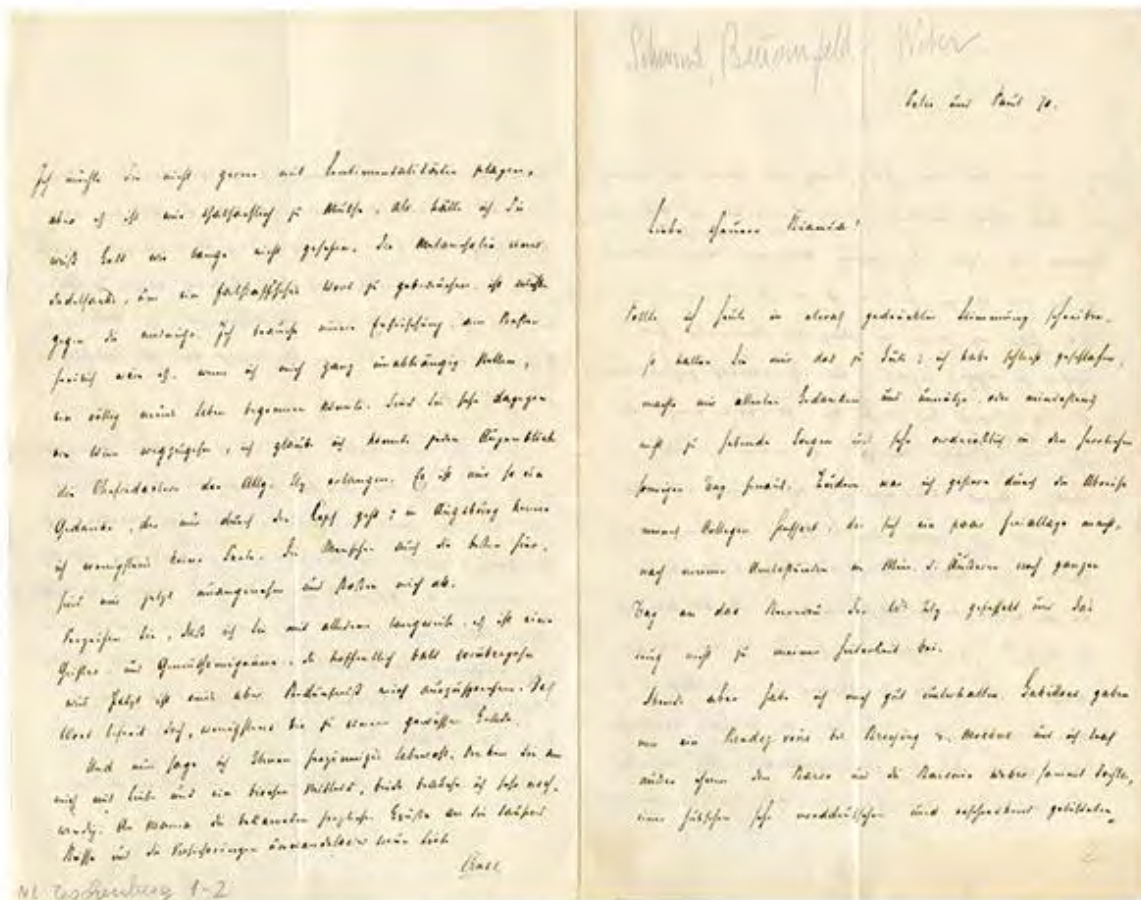 Ich möchte Sie nicht gerne mit Sentimentalitäten plagen,
aber es ist mir thatsächlich zu Muthe, als hätte ich Sie
weiß Gott wie lange nicht gesehen. Die Melancholie eines
Dudelsacks, um ein Falstaffsches Wort zu gebrauchen, ist nichts
gegen die meinige. Ich brauche eine Erfrischung, am Besten
freilich wäre es, wenn ich mich ganz unabhängig stellen,
ein völlig neues Leben beginnen könnte. Sind Sie sehr dagegen
von Wien wegzugehen, ich glaube ich könnte jeden Augenblick
die Chefredacteur der Allg. Ztg. erlangen. Es ist nur so ein
Gedanke, der mir durch den Kopf geht; in Augsburg kenne
ich wenigstens keine Seele. Die Menschen, auch die besten hier,
sind mir jetzt unangenehm und stoßen mich ab.
Verzeihen Sie, daß ich Sie mit alledem langweile, es ist eine
Geistes- und Gemüthsmigraine, die hoffentlich bald vorübergehen
wird. Jetzt ist mir's aber Bedürfniß mich auszusprechen. Das
Wort befreit doch, wenigstens bis zu einem gewissen Grade.
Und nun sage ich Ihnen herzinniges Lebewohl. Denken Sie an
mich mit Liebe und ein bischen Mitleid, beide habe ich sehr noth-
wendig. An Mama die bekannten herzlichen Grüße an Sie tausend
Küsse und die Versicherungen unwandelbar treuer Liebe
NL Eschenberg 1-2
Schwind, Bauernfeld, Weber
Peter und Paul 70.
Liebe theuere Bianca!
Sollte ich heute in etwas gedrückter Stimmung schreiben,
so halten Sie mir das zu Gute; ich habe schlecht geschlafen,
mache mir allerlei Gedanken und unnütze, oder mindestens
nicht zu hebende Sorgen und sehe verdrießlich in den herrlichen
sonnigen Tag hinaus. Zudem war ich gestern durch die Abreise
meines Collegen, der sich ein paar Freitage macht,
nach meinen Amtsstunden im Min. d. Äußeren noch ganzen
Tag an das Bureau der Ztg. gefesselt und das
trug nicht zu meiner Heiterkeit bei.
Abends aber habe ich mich gut unterhalten. Gabillons gaben
mir ein Rendez vous bei und ich traf
außer ihnen den Baron und die Baronin Weber sammt Tochter,
einer hübschen sehr norddeutschen und entsprechend gebildeten
2